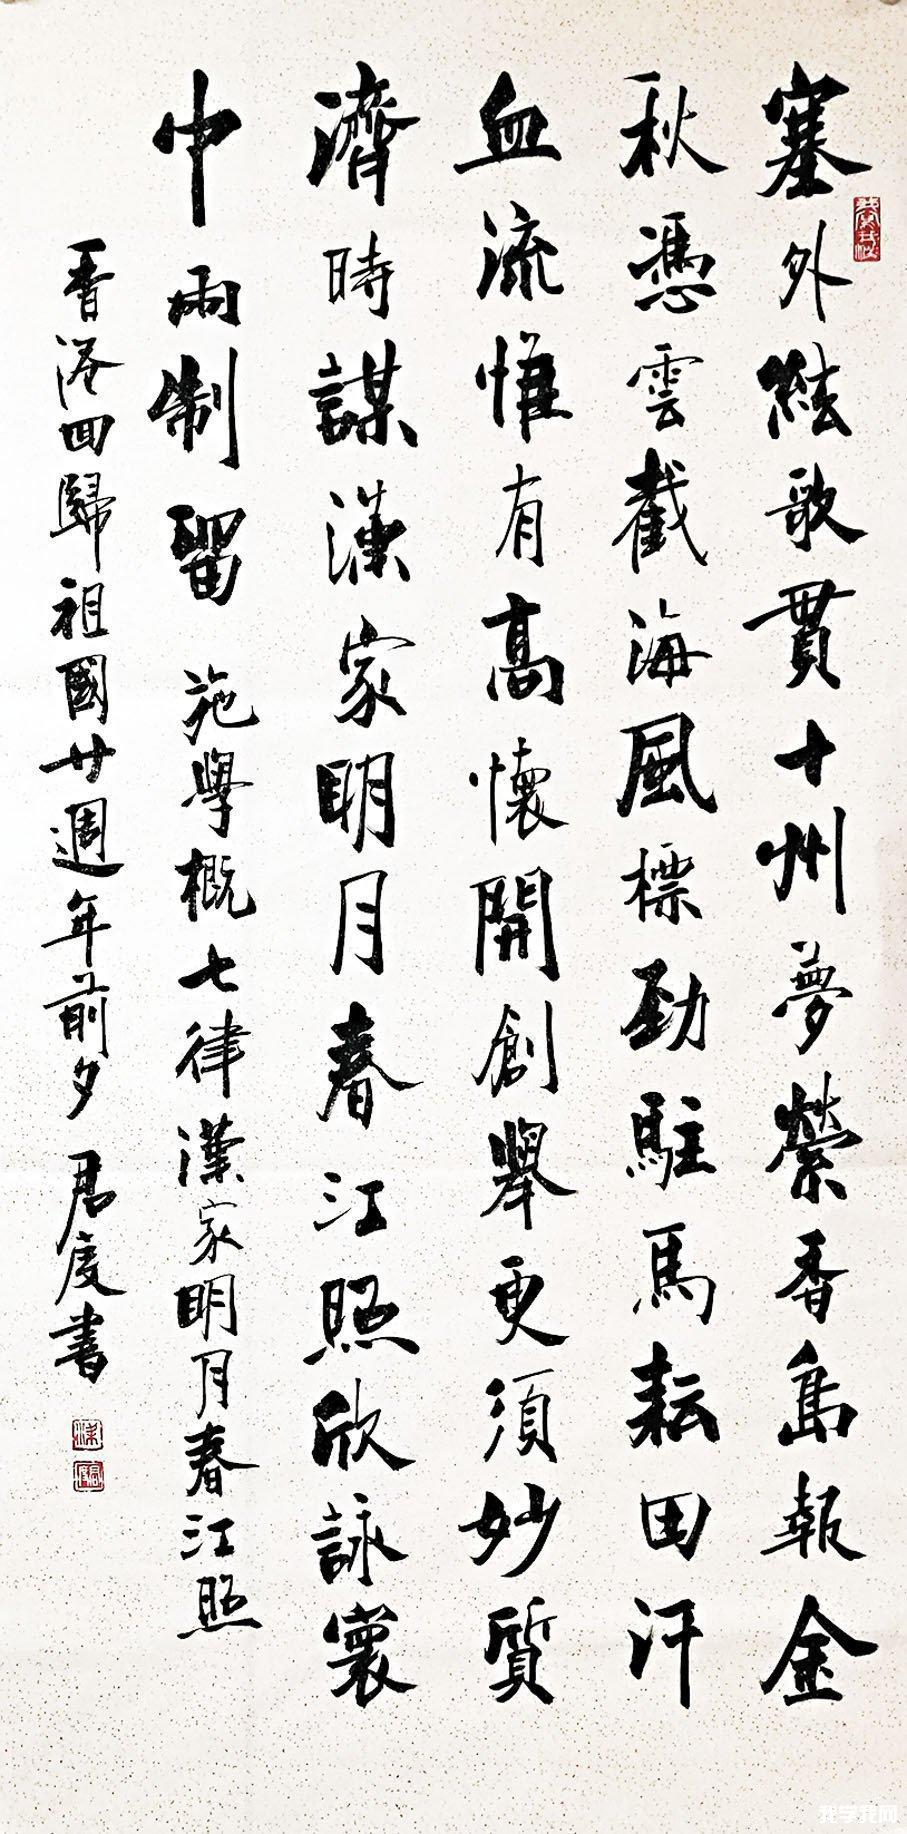 塞外絃歌貫十州夢縈香島報金
秋憑雲截海風標勁駐馬耘田汗
血流惟有高懷開創舉更須妙質
濟時謀漢家明月春江照欣詠寰
中兩制留 施學概七律漢家明月春江照
香港回歸祖國廿週年前夕 君度書
我学我网